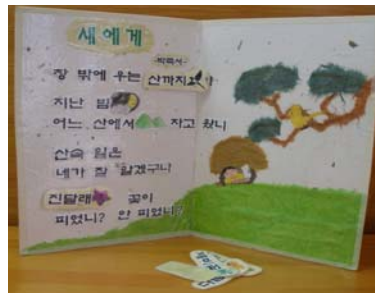 새에게
-박목서-
창 밖에 우는 산까지
지난 밤
어느 산에서 자고 왔니
산속 일은
네가 잘 알겠구나
진달래 꽃이
피었니? 안 피었니?